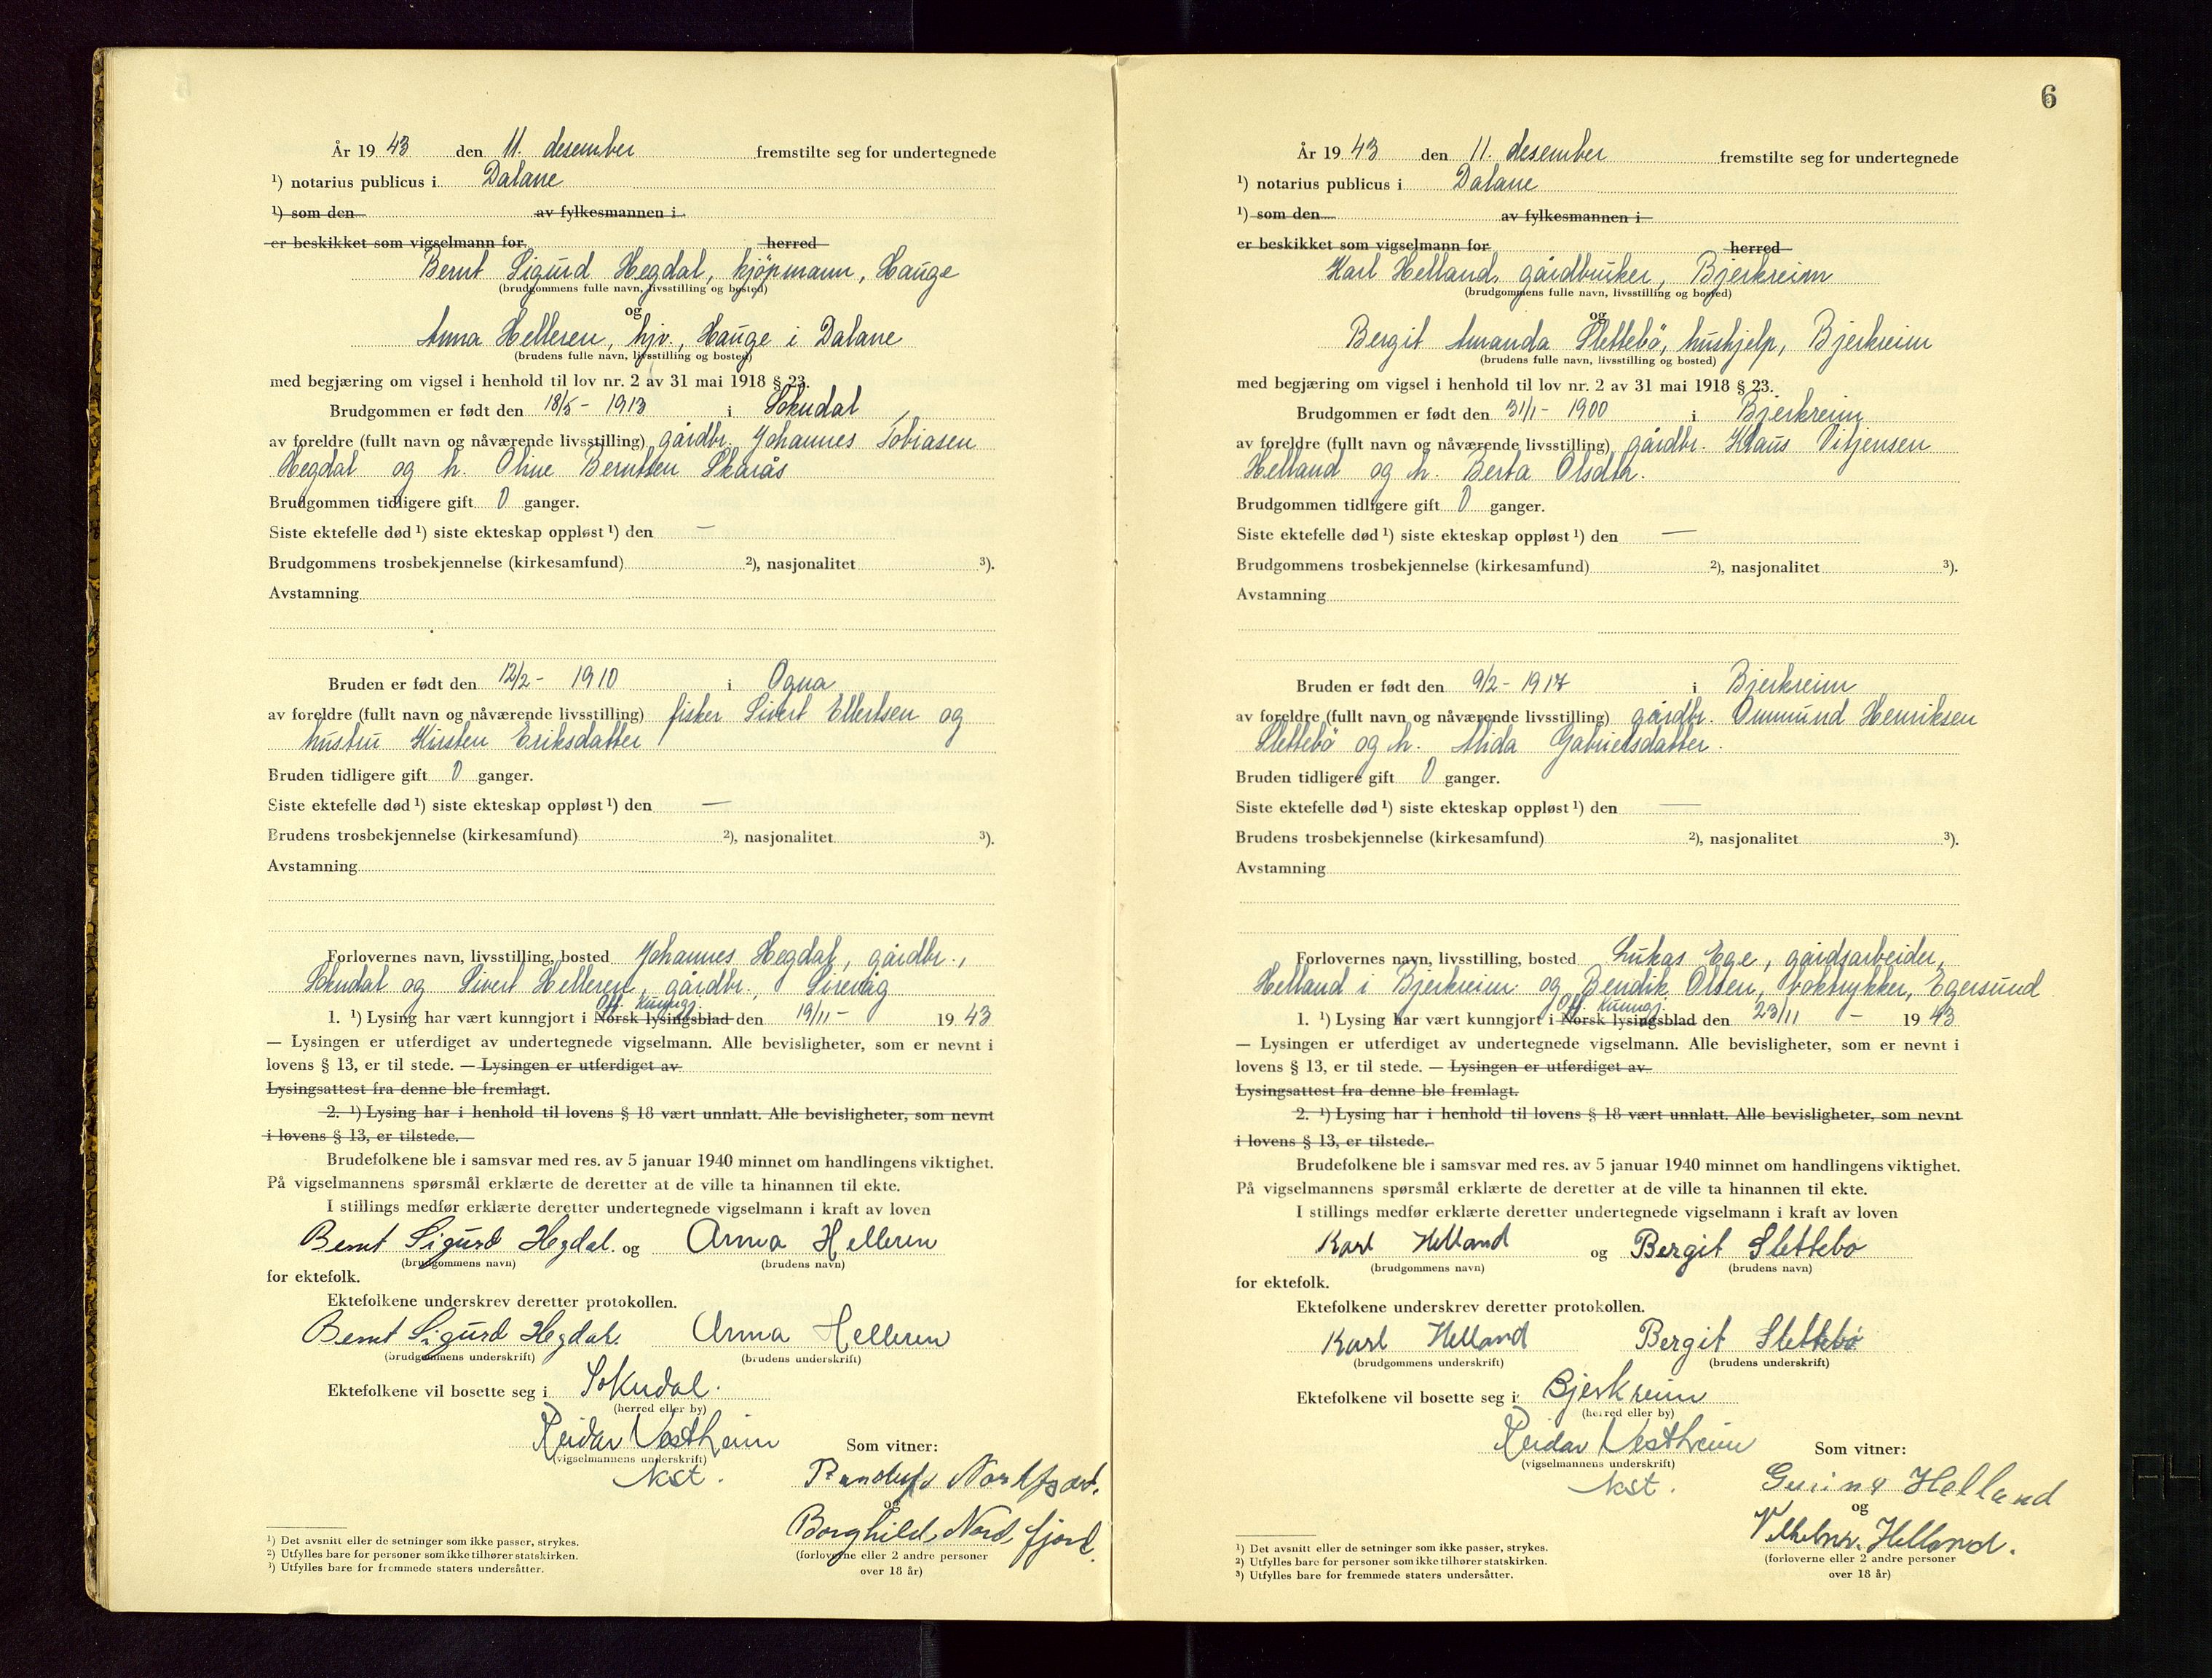 År 1943 den 11. desember fremstilte seg for undertegnede
¹) notarius publicus i Dalane
¹) som den av fylkesmannen i
er beskikket som vigselmann for herred
Bernt Sigurd Hegdal, kjöpmann, Hauge
(brudgommens fulle navn, livsstilling og bosted)
og
Anna Helleren, hjv., Hauge i Dalane
(brudens fulle navn, livsstilling og bosted)
med begjæring om vigsel i henhold til lov nr. 2 av 31 mai 1918 § 23.
Brudgommen er født den 18/5 - 1913 i Sokndal
av foreldre (fullt navn og nåværende livsstilling) gårdbr. Johannes Tobiasen
Hegdal og h. Oline Berntsen Skarås
Brudgommen tidligere gift 0 ganger.
Siste ektefelle død ¹) siste ekteskap oppløst ¹) den —
Brudgommens trosbekjennelse (kirkesamfund) ²), nasjonalitet ³).
Avstamning
Bruden er født den 12/2 - 1910 i Ogna
av foreldre (fullt navn og nåværende livsstilling) fisker Sivert Ellertsen og
hustru Kirsten Eriksdatter
Bruden tidligere gift 0 ganger.
Siste ektefelle død ¹) siste ekteskap oppløst ¹) den —
Brudens trosbekjennelse (kirkesamfund) ²), nasjonalitet ³).
Avstamning
Forlovernes navn, livsstilling, bosted Johannes Hegdal, gårdbr.,
Sokndal og Sivert Helleren, gårdbr., Sirevåg
Off. Kunngj.
1. ¹) Lysing har vært kunngjort i Norsk lysingsblad den 19/11 - 1943
— Lysingen er utferdiget av undertegnede vigselmann. Alle bevisligheter, som er nevnt i
lovens § 13, er til stede. — Lysingen er utferdiget av
Lysingsattest fra denne ble fremlagt.
2. ¹) Lysing har i henhold til lovens § 18 vært unnlatt. Alle bevisligheter, som nevnt
i lovens § 13, er tilstede. —
Brudefolkene ble i samsvar med res. av 5 januar 1940 minnet om handlingens viktighet.
På vigselmannens spørsmål erklærte de deretter at de ville ta hinannen til ekte.
I stillings medfør erklærte deretter undertegnede vigselmann i kraft av loven
Bernt Sigurd Hegdal. og Anna Helleren
(brudgommens navn) (brudens navn)
for ektefolk.
Ektefolkene underskrev deretter protokollen.
Bernt Sigurd Hegdal. Anna Helleren
(brudgommens underskrift) (brudens underskrift)
Ektefolkene vil bosette seg i Sokndal.
(herred eller by)
Reidar Vestheim
(vigselmannens underskrift)
Som vitner:
Nordfjord.
og
Borghild Nordfjord.
(forloverne eller 2 andre personer
over 18 år)
¹) Det avsnitt eller de setninger som ikke passer, strykes.
²) Utfylles bare for personer som ikke tilhører statskirken.
³) Utfylles bare for fremmede staters undersåtter.
6
År 1943 den 11. desember fremstilte seg for undertegnede
¹) notarius publicus i Dalane
¹) som den av fylkesmannen i
er beskikket som vigselmann for herred
Karl Helland, gårdbruker, Bjerkreim
(brudgommens fulle navn, livsstilling og bosted)
og
Bergit Amanda Slettebö, hushjelp, Bjerkreim
(brudens fulle navn, livsstilling og bosted)
med begjæring om vigsel i henhold til lov nr. 2 av 31 mai 1918 § 23.
Brudgommen er født den 31/1 - 1900 i Bjerkreim
av foreldre (fullt navn og nåværende livsstilling) gårdbr. Klaus Vitjensen
Helland og h. Berta Olsdtr.
Brudgommen tidligere gift 0 ganger.
Siste ektefelle død ¹) siste ekteskap oppløst ¹) den —
Brudgommens trosbekjennelse (kirkesamfund) ²), nasjonalitet ³).
Avstamning
Bruden er født den 9/2 - 1917 i Bjerkreim
av foreldre (fullt navn og nåværende livsstilling) gårdbr. Ommund Henriksen
Slettebö og h. Alida Gabrielsdatter.
Bruden tidligere gift 0 ganger.
Siste ektefelle død ¹) siste ekteskap oppløst ¹) den —
Brudens trosbekjennelse (kirkesamfund) ²), nasjonalitet ³).
Avstamning
Forlovernes navn, livsstilling, bosted Lukas Ege, gårdsarbeider,
Helland i Bjerkreim og Bendik Olsen, boktrykker, Egersund
Off. Kunngj.
1. ¹) Lysing har vært kunngjort i Norsk lysingsblad den 23/11 - 1943
— Lysingen er utferdiget av undertegnede vigselmann. Alle bevisligheter, som er nevnt i
lovens § 13, er til stede. — Lysingen er utferdiget av
Lysingsattest fra denne ble fremlagt.
2. ¹) Lysing har i henhold til lovens § 18 vært unnlatt. Alle bevisligheter, som nevnt
i lovens § 13, er tilstede.
Brudefolkene ble i samsvar med res. av 5 januar 1940 minnet om handlingens viktighet.
På vigselmannens spørsmål erklærte de deretter at de ville ta hinannen til ekte.
I stillings medfør erklærte deretter undertegnede vigselmann i kraft av loven
Karl Helland og Bergit Slettebo
(brudgommens navn) (brudens navn)
for ektefolk.
Ektefolkene underskrev deretter protokollen.
Karl Helland Bergit Slettebö
(brudgommens underskrift) (brudens underskrift)
Ektefolkene vil bosette seg i Bjerkreim
(herred eller by)
Reidar Vestheim
(vigselmannens underskrift)
Som vitner:
Gurine Helland
og
Helland.
(forloverne eller 2 andre personer
over 18 år)
¹) Det avsnitt eller de setninger som ikke passer, strykes.
²) Utfylles bare for personer som ikke tilhører statskirken.
³) Utfylles bare for fremmede staters undersåtter.